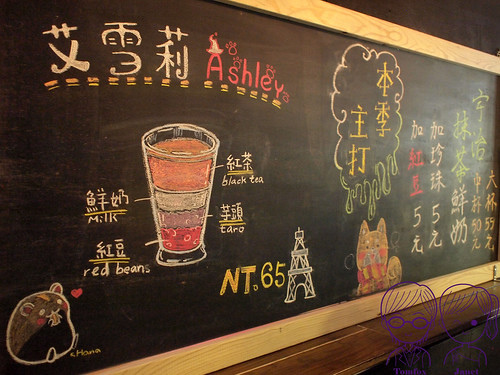 艾雪莉 Ashley
紅茶
black tea
鮮奶
Milk
芋頭
taro
紅豆
red beans
NT.65
K.Hana
本季
主打
宇治
抹茶鮮奶
大杯55元
中杯50元
加珍珠5元
加紅豆5元
Tomfox
Janet